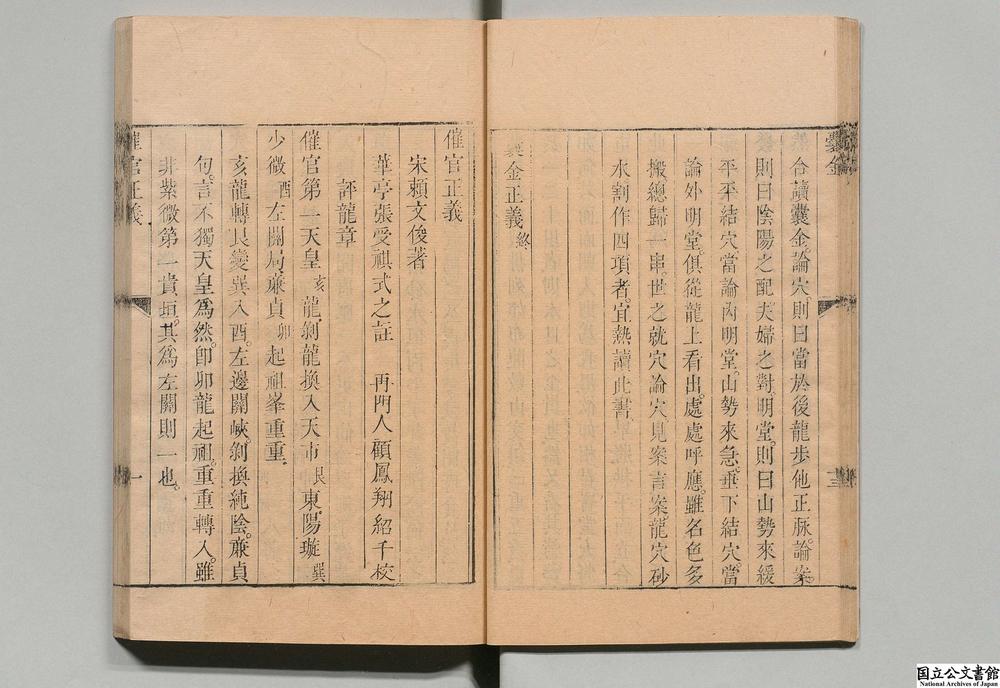 囊金
合讀囊金論穴則曰當於後龍步他正脉論案
則曰陰陽之配夫婦之對明堂則曰山勢來緩
平平結穴當論內明堂山勢來急垂下結穴當
論外明堂俱從龍上看出處處呼應雖名色多
搬總歸一串世之就穴論穴見案言案龍穴砂
水割作四項者宜熟讀此書
囊金正義終
催官正義
宋賴文俊著
華亭張受祺式之註 再門人顧鳳翔紹千校
評龍章
催官第一天皇亥龍剝龍換入天市艮東陽璇巽
少微酉左關局蔗貞卯起祖峯重重
亥龍轉艮變巽入酉左邊關峽剝換純陰蔗貞
句言不獨天皇爲然卽卯龍起祖重重轉入雖
非紫微第一貴垣其爲左關則一也
催官正義
一
国立公文書館
National Archives of Japan